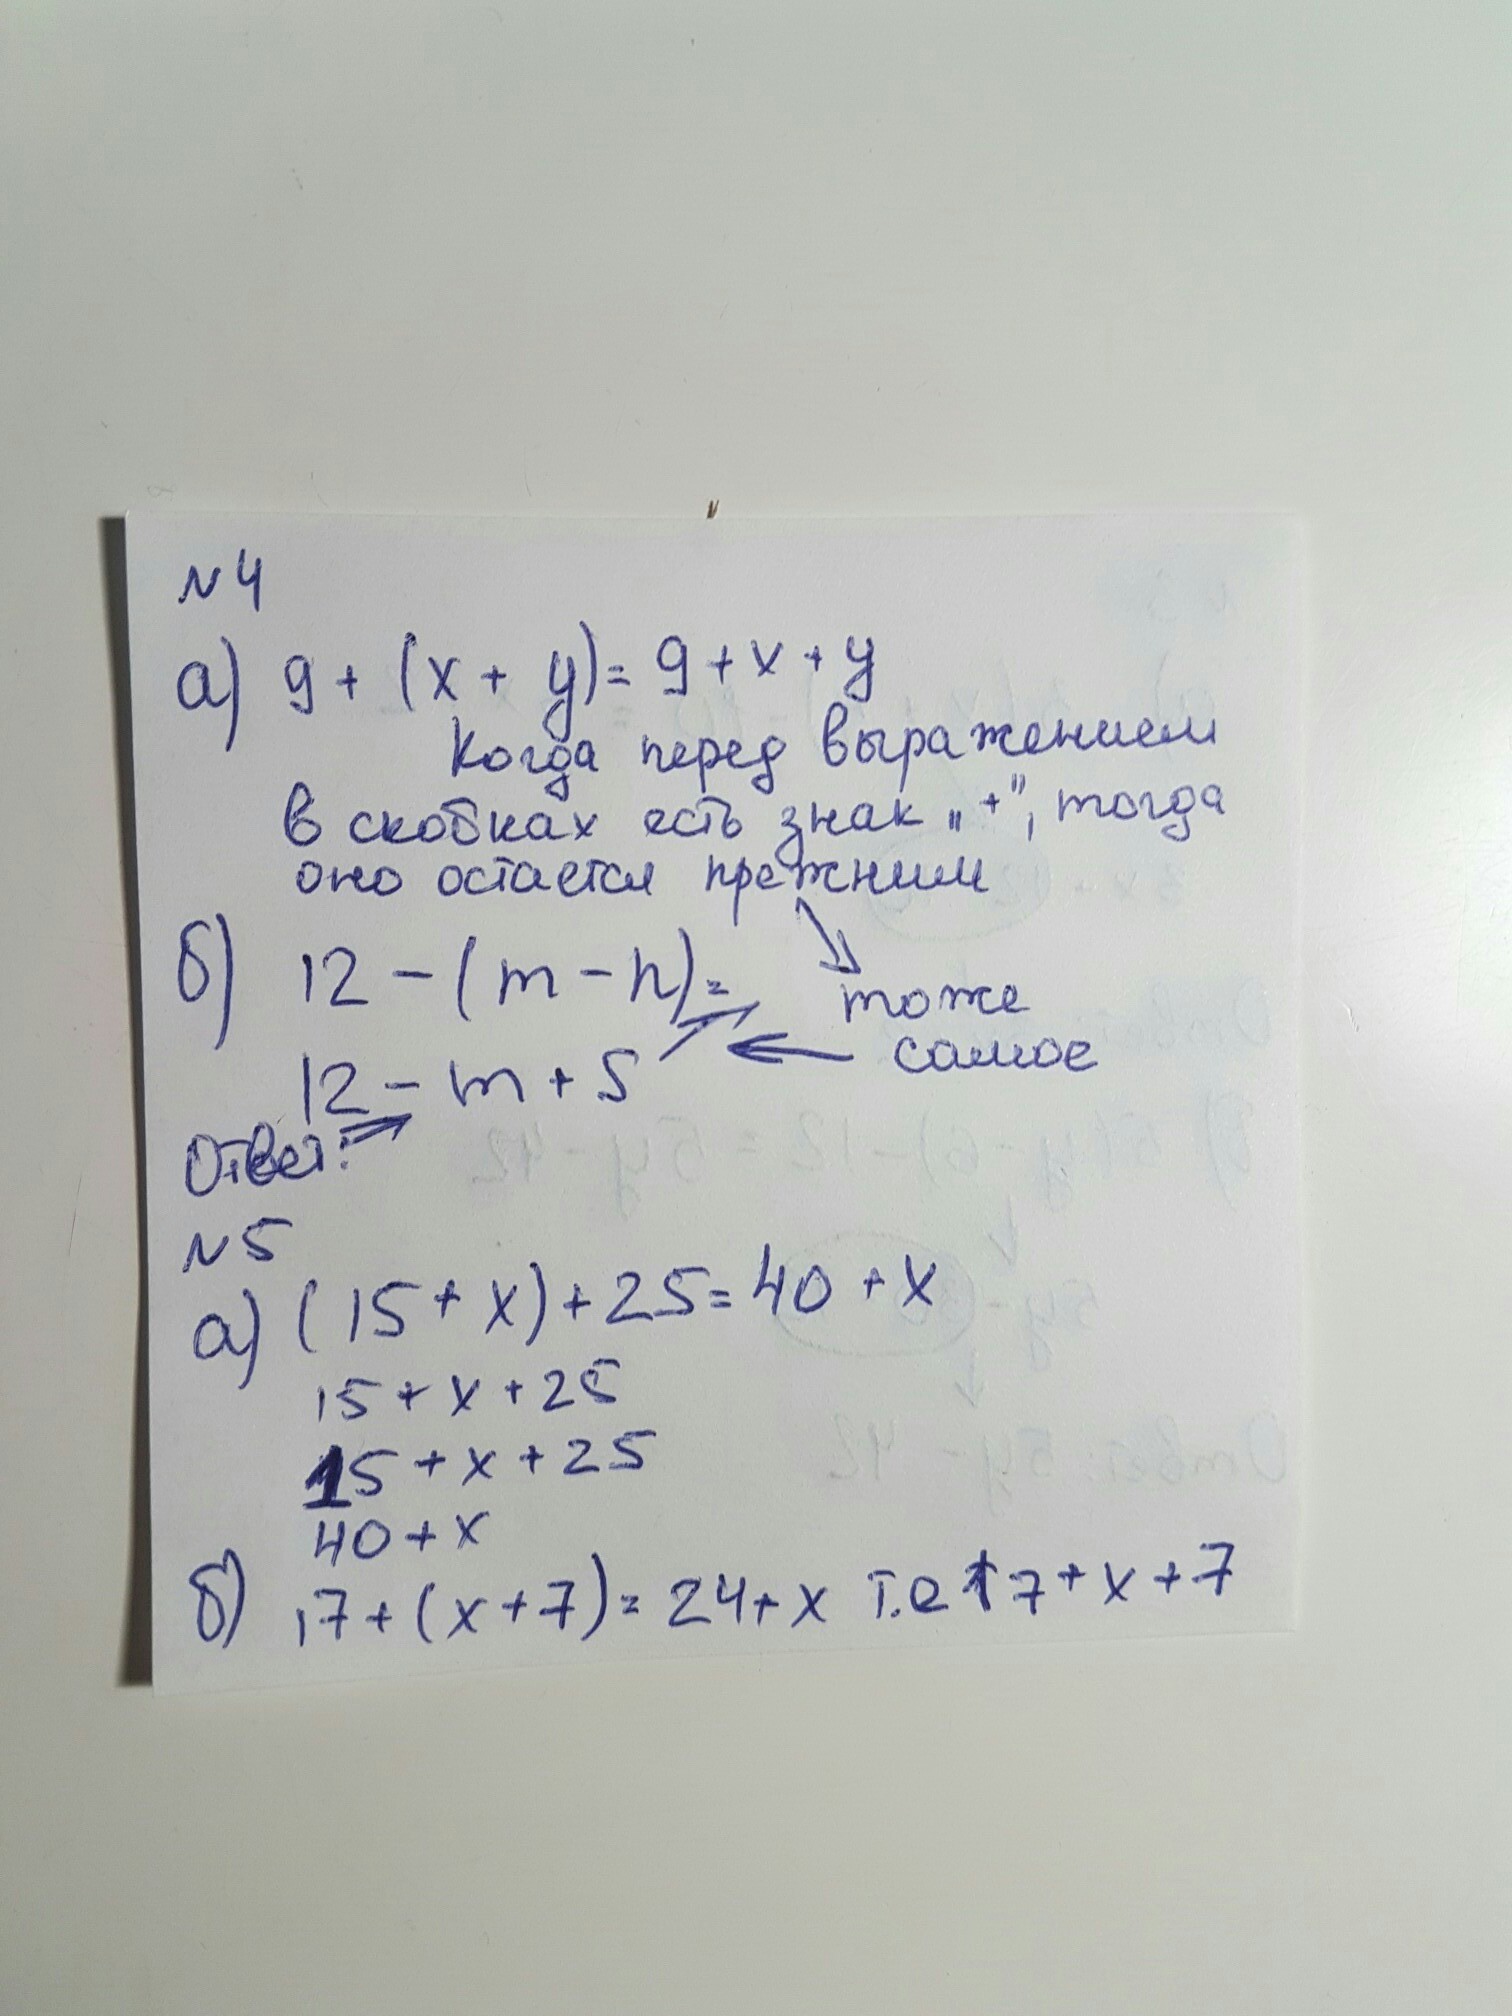 №4
а) 9 + (x + y) = 9 + x + y
Когда перед выражением
в скобках есть знак „+", тогда
оно остается прежним
б) 12 - (m - n) =
тоже
самое
12 - m + 5
Ответ:
№5
а) (15 + x) + 25 = 40 + x
15 + x + 25
15 + x + 25
40 + x
б) 17 + (x + 7) = 24 + x т.е 17 + x + 7